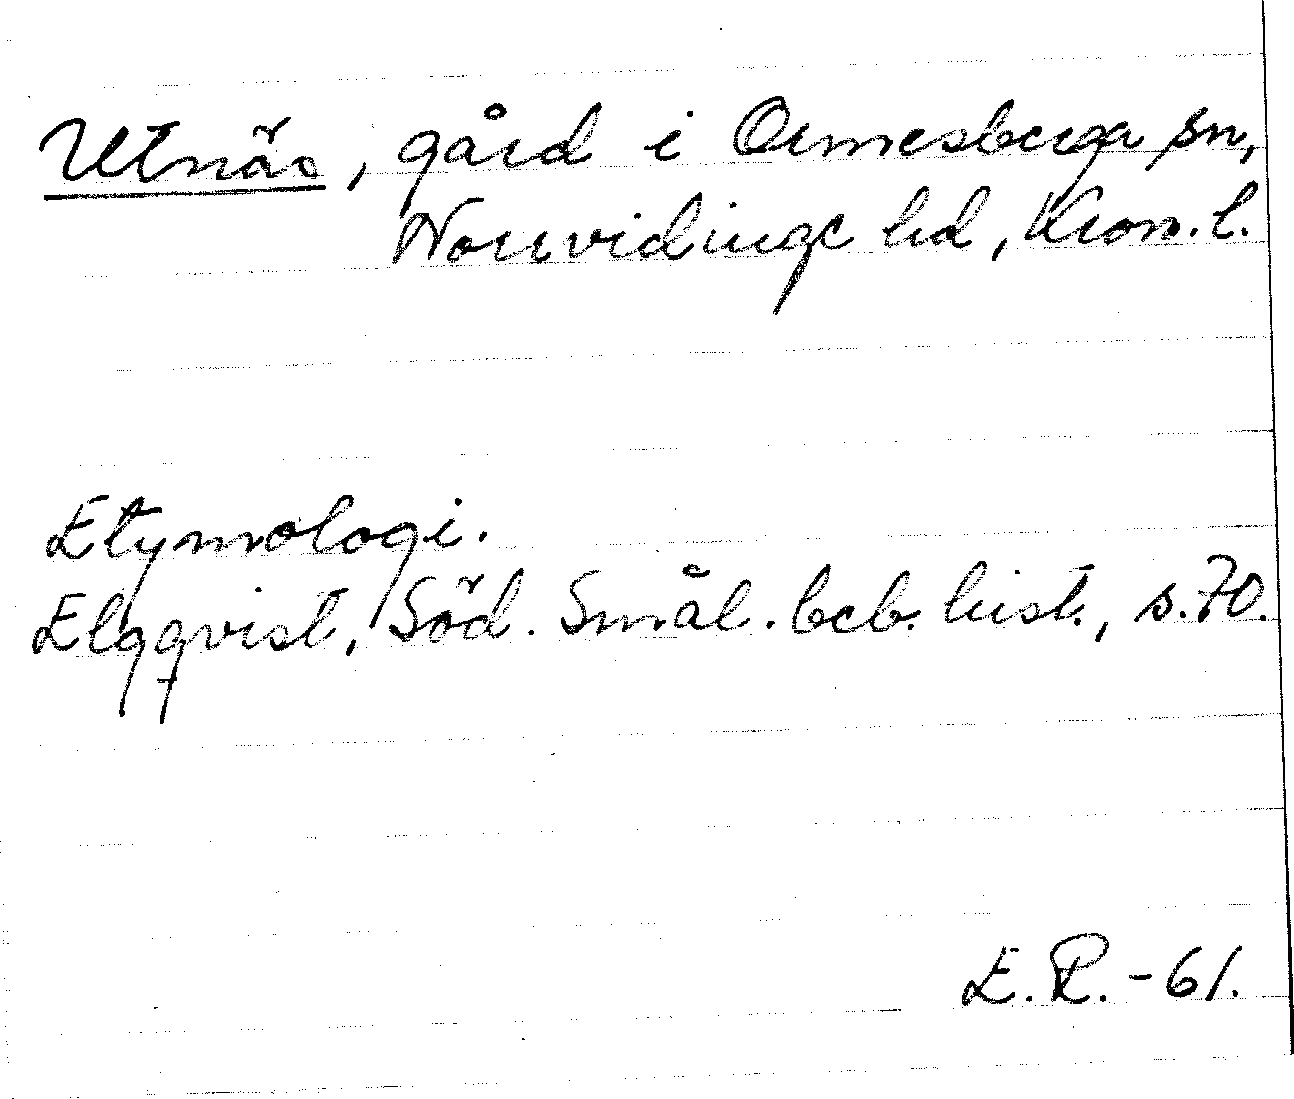 Utnäs, gård i Ormesberga sn,
Norrvidinge hd, Kron. l.
Etymologi.
Elgqvist, Söd. Smål. beb. hist., s. 70.
E. R. -61.